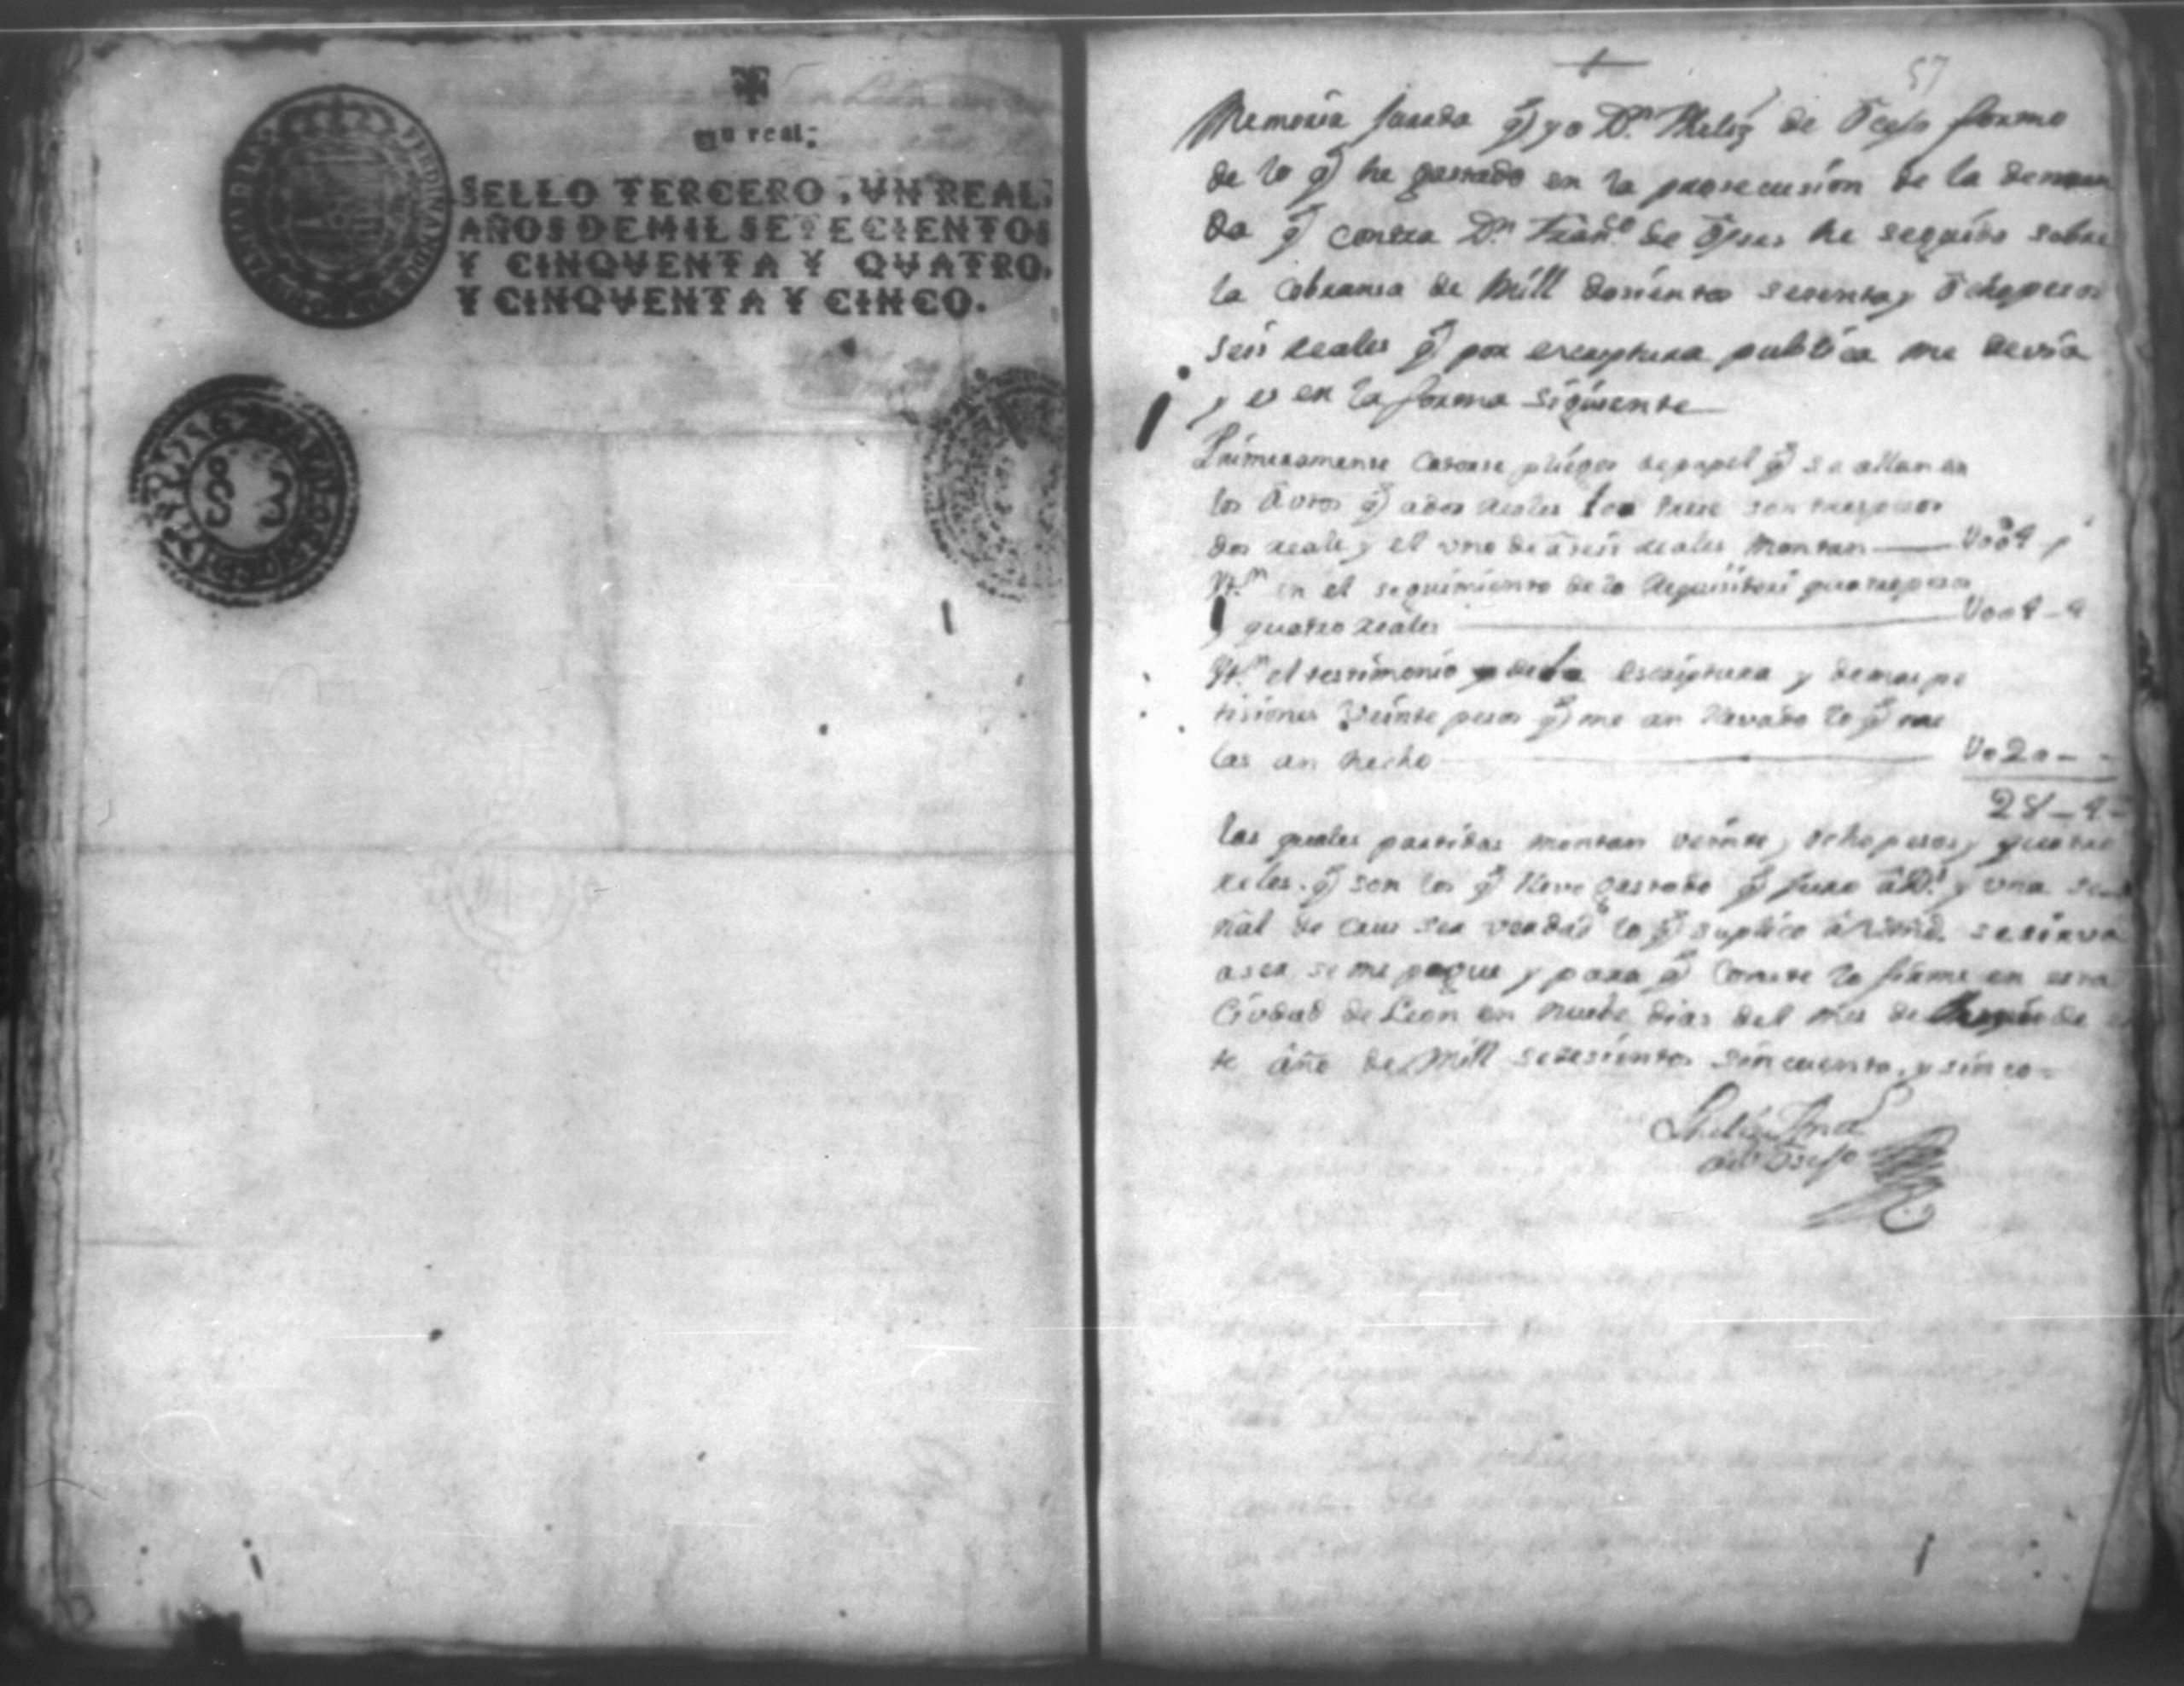 Un real.
SELLO TERCERO, VN REAL,
AÑOS DE MIL SETECIENTOS
Y CINQVENTA Y QVATRO,
Y CINQVENTA Y CINCO.
57
Memoria Jurada q̃ yo Dn. Phelix de formo
de lo q̃ he gastado en la prosecusion de la deman
da q̃ contra Dn. Franco. de he seguido sobre
la Cobransa de Mill dosientos setenta y ōcho pesos
seis reales q̃ por escriptura publica me devia
y es en la forma siguiente
Primeramente Catorse pliegos de papel q̃ se allan en
los Autos q̃ a dos reales los trese son tres pesos
dos reales y el uno de a seis reales montan — U004 p
Yt.n en el seguimiento de la Requisitori quatro pesos
y quatro reales — U004-4
Yt.n el testimonio de la escriptura y demas pe
tisiones Veinte pesos q̃ me an llevado lo q̃ me
las an hecho — U020--
28-4-
las quales partidas montan veinte y ocho pesos y quatro
reles. q̃ son los q̃ llevo gastado q̃ juro a Ds. y una se
ñal de crus ser verdad lo q̃ suplico a se sirva
aser se me pague y para q̃ Conste lo firme en esta
Ciudad de Leon en nuebe dias del mes de de
te año de Mill setesientos sincuenta, y sinco=
Phelix
de